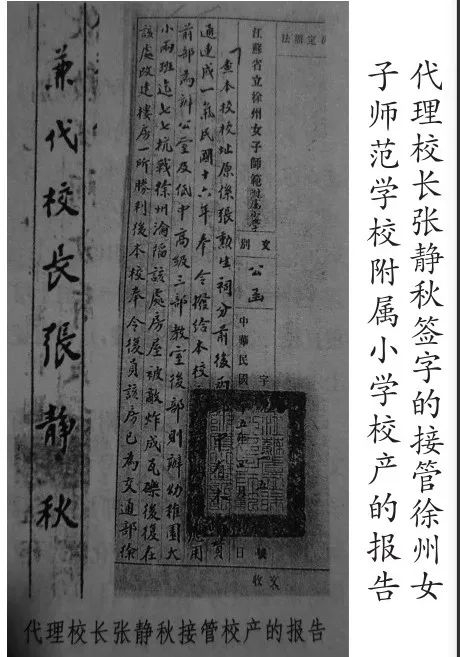 代理校长张静秋签字的接管徐州女
子师范学校附属小学校产的报告
法定辦
江蘇省立徐州女子師範附屬
別 文
公函
中華民國 五年五月 日
字
號
收文
查本校校址原係張勲生祠分前後兩部
通連成一氣民國十六年奉令撥給本校應用
前部為辦公室及低中高級三部教室後部則辦幼稚園大
小兩班迨七七抗戰徐州淪陷該處房屋被敵炸成瓦礫後復在
該處改建樓房一所勝利後本校奉令復員該房已為交通部徐
兼代校長張靜秋
代理校长张静秋接管校产的报告